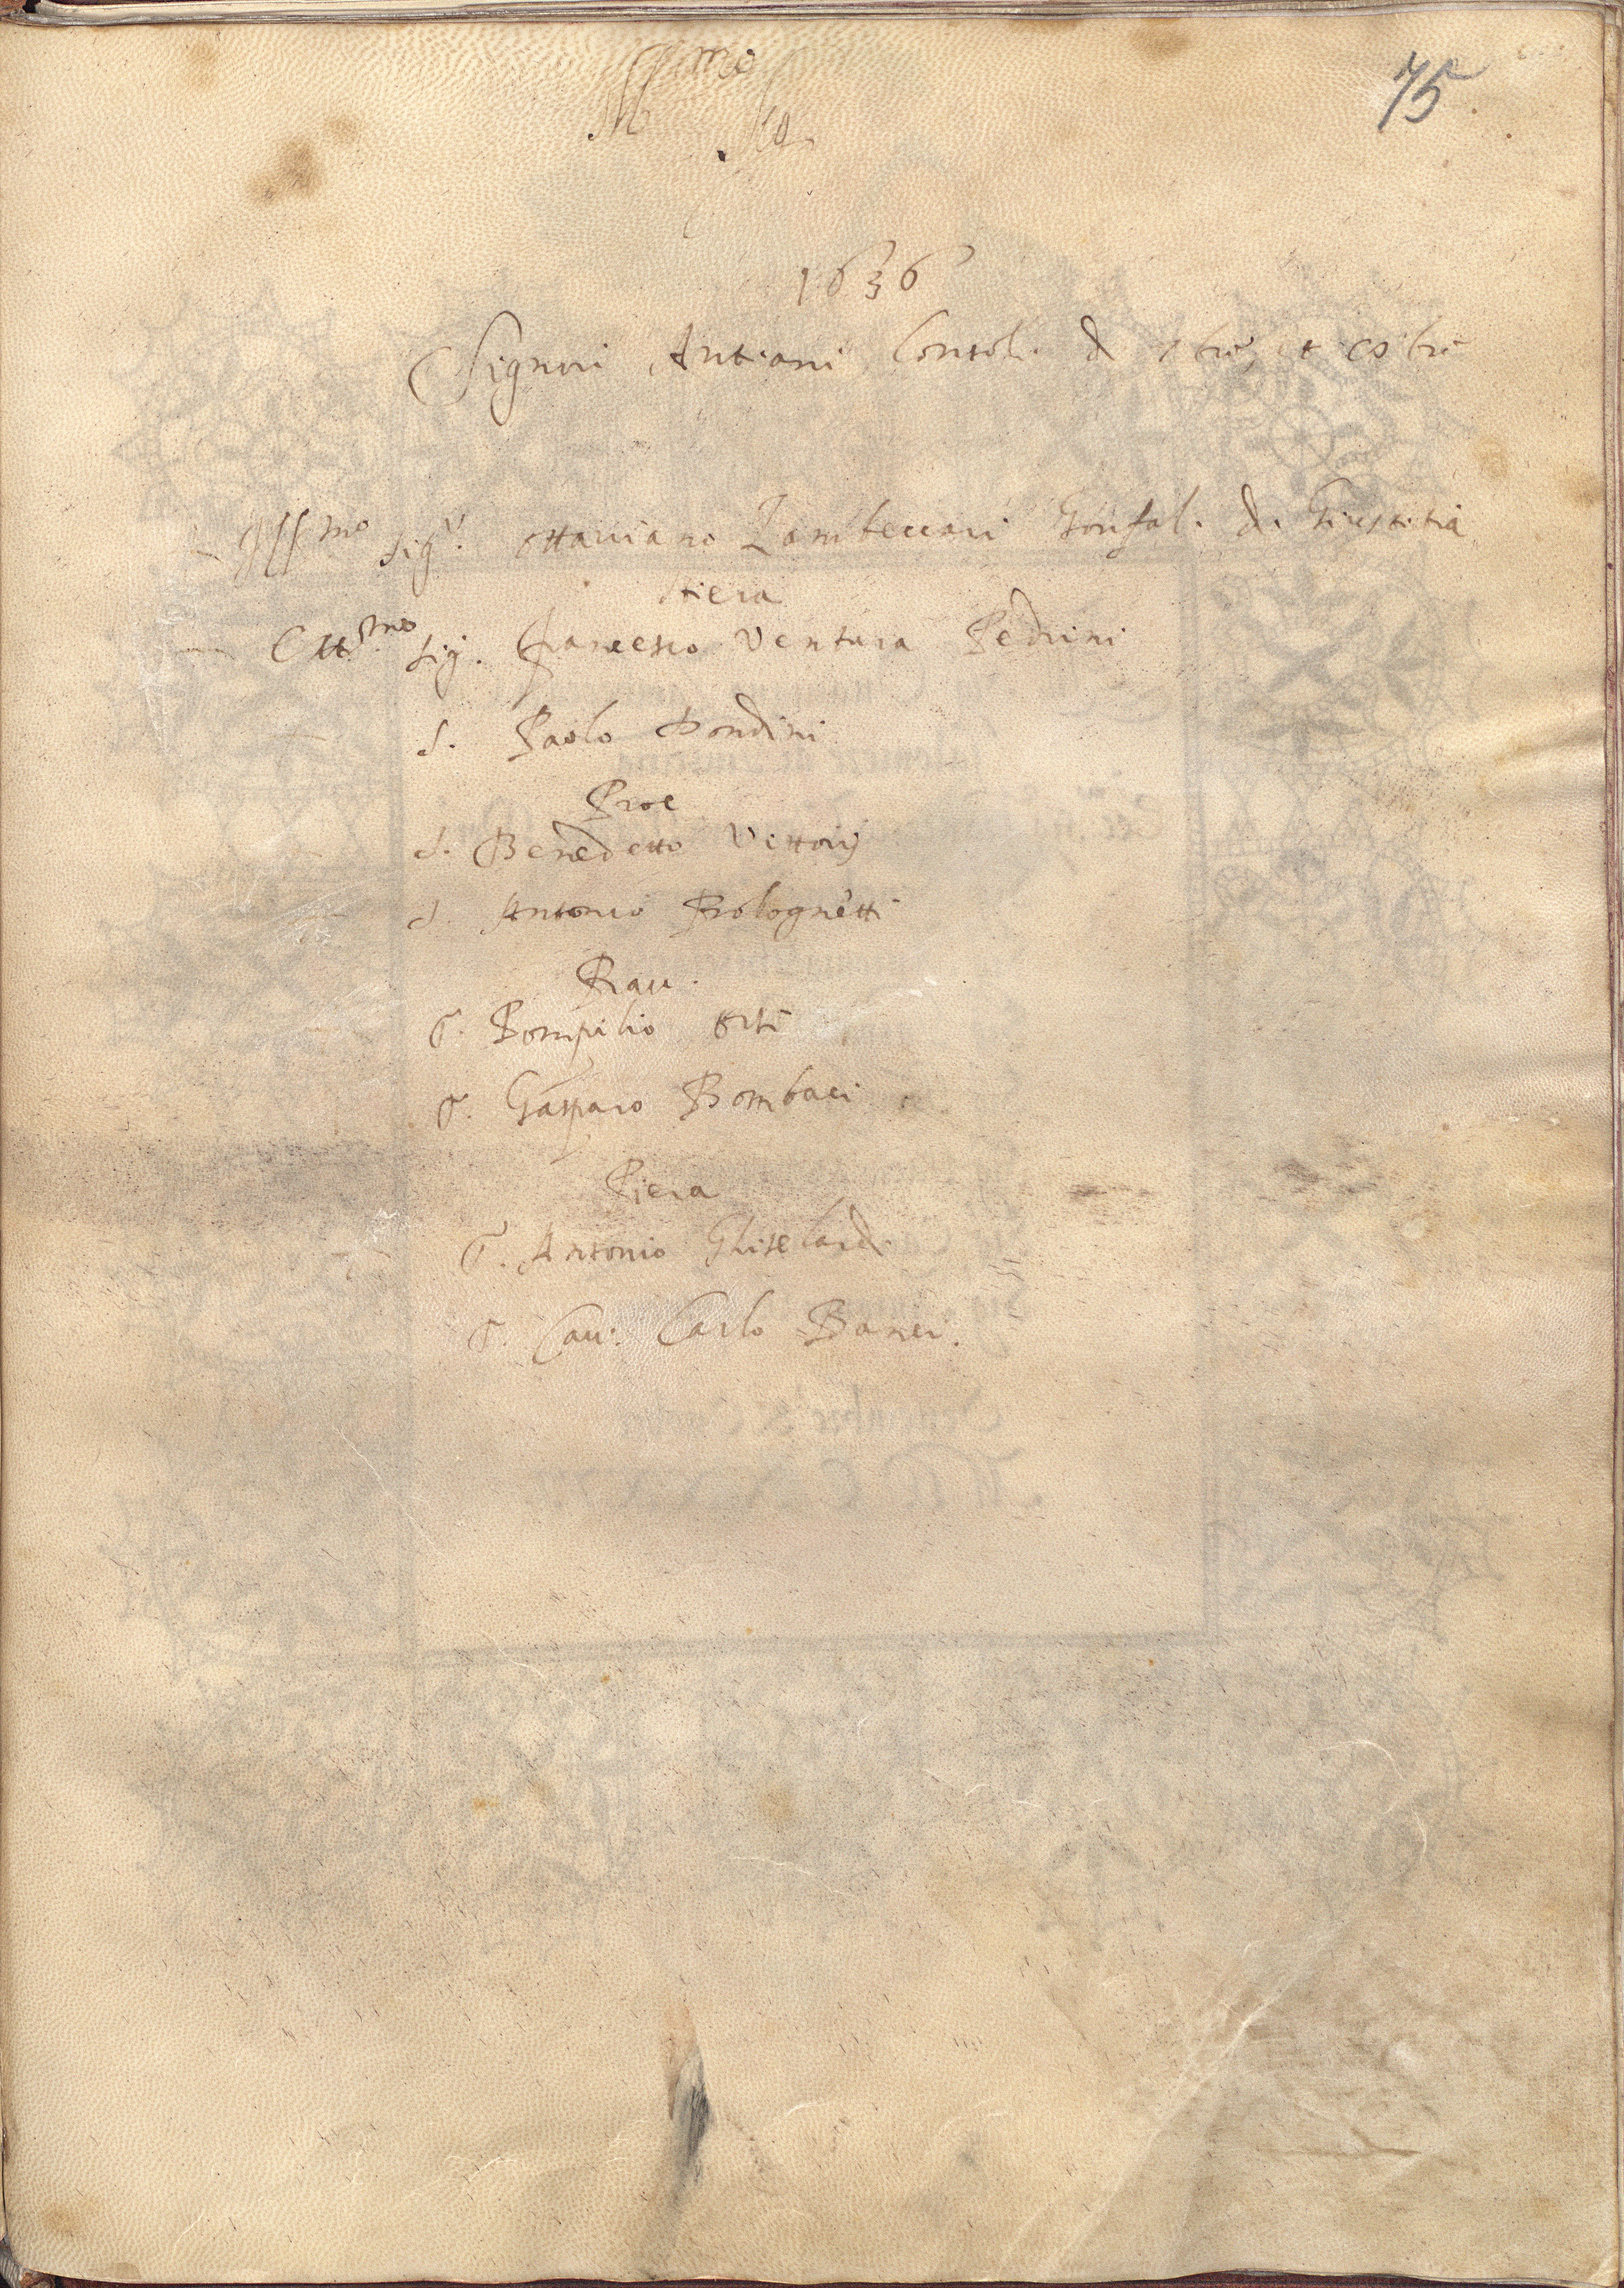 75
1636
Signori Antiani Consoli d 7bre, et 8bre
Ill.mo Sig.r Ottaviano Zambeccari Gonfal. di Giustitia
Stiera
Ecc.mo Sig. Francesco Ventura Pedrini
S. Paolo Dondini
Proc
S. Benedetto Vittorij
S. Antonio Bolognetti
Rav.
S. Pompilio Orsi
S. Gasparo Bombaci
Piera
S. Antonio Ghiselardi
S. Cav. Carlo Banci.